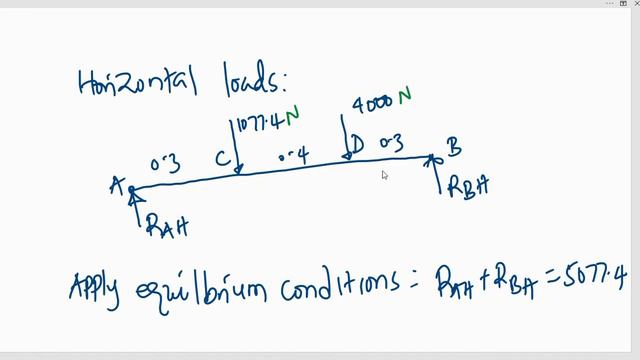 Horizontal loads:
1077.4N
4000N
0.3
C
0.4
D
0.3
B
A
RAH
RBH
Apply equilbrium conditions: RAH+RBH=5077.4